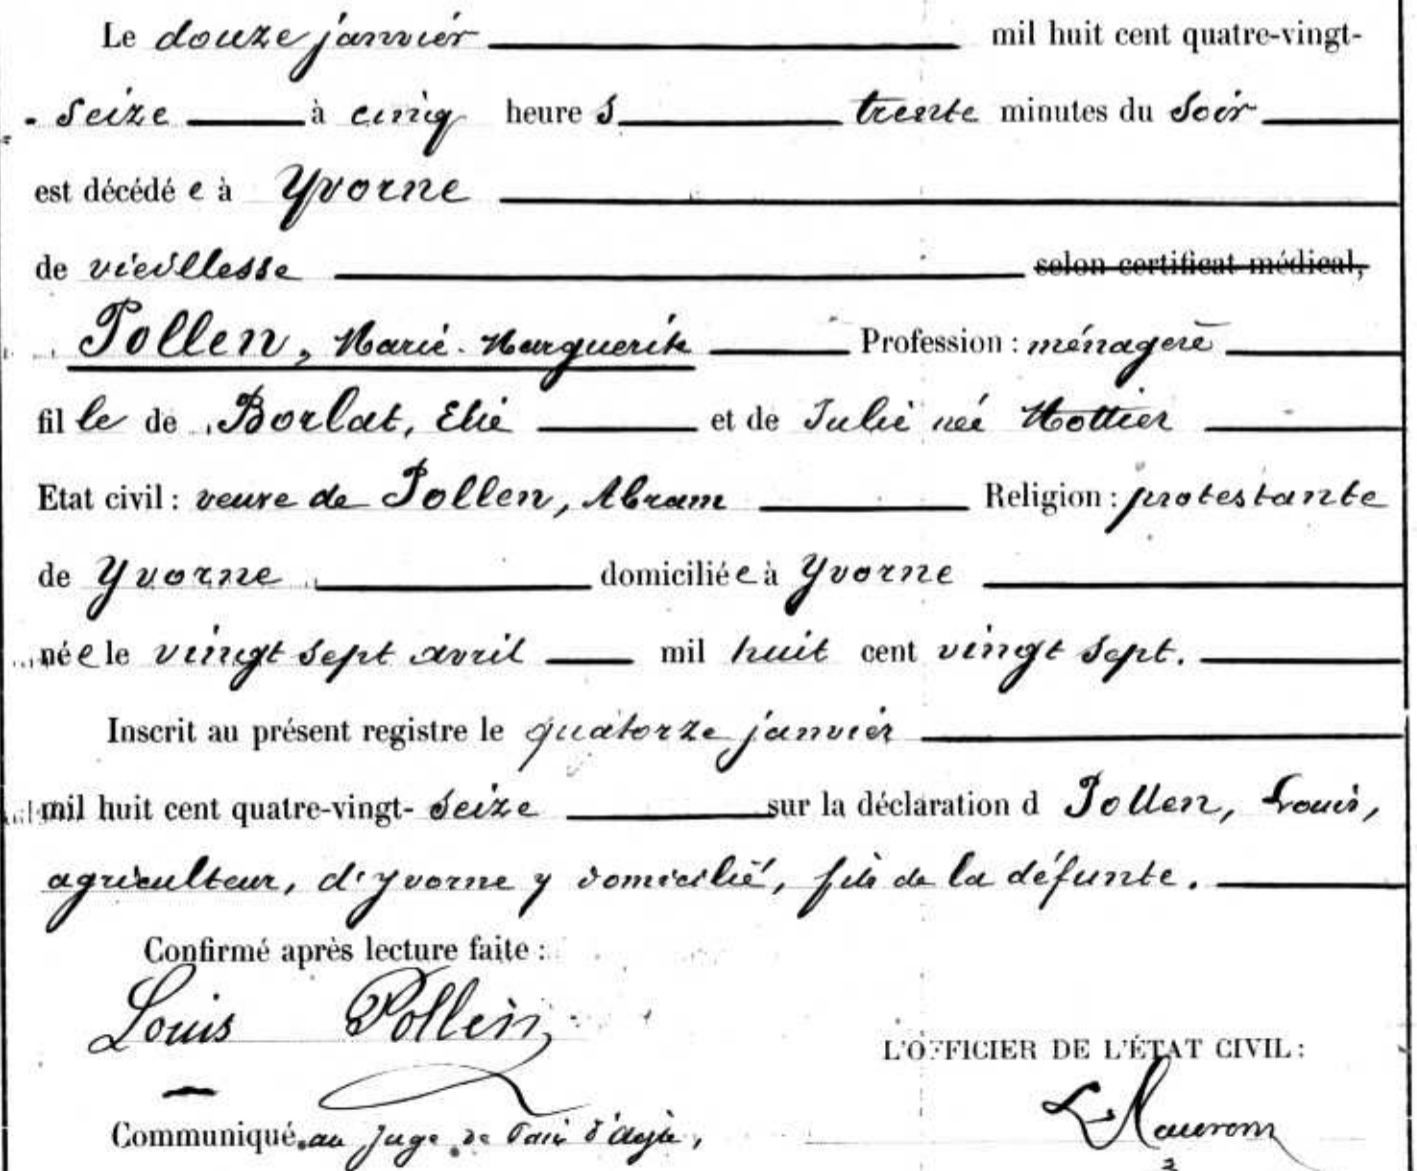 Le douze janvier mil huit cent quatre-vingt-
- seize à cinq heures trente minutes du soir
est décédée à Yvorne
de vieillesse selon certificat médical,
Pollen, Marie-Marguerite Profession : ménagère
fille de Borlat, Elie et de Julie née
Etat civil : veuve de Pollen, Abram Religion : protestante
de Yvorne domiciliée à Yvorne
née le vingt sept avril mil huit cent vingt sept.
Inscrit au présent registre le quatorze janvier
mil huit cent quatre-vingt- seize sur la déclaration d Pollen, Louis,
agriculteur, d'Yvorne y domicilié, fils de la défunte.
Confirmé après lecture faite :
Louis Pollen
L'OFFICIER DE L'ÉTAT CIVIL :
Communiqué au juge de Paix d'Aigle,